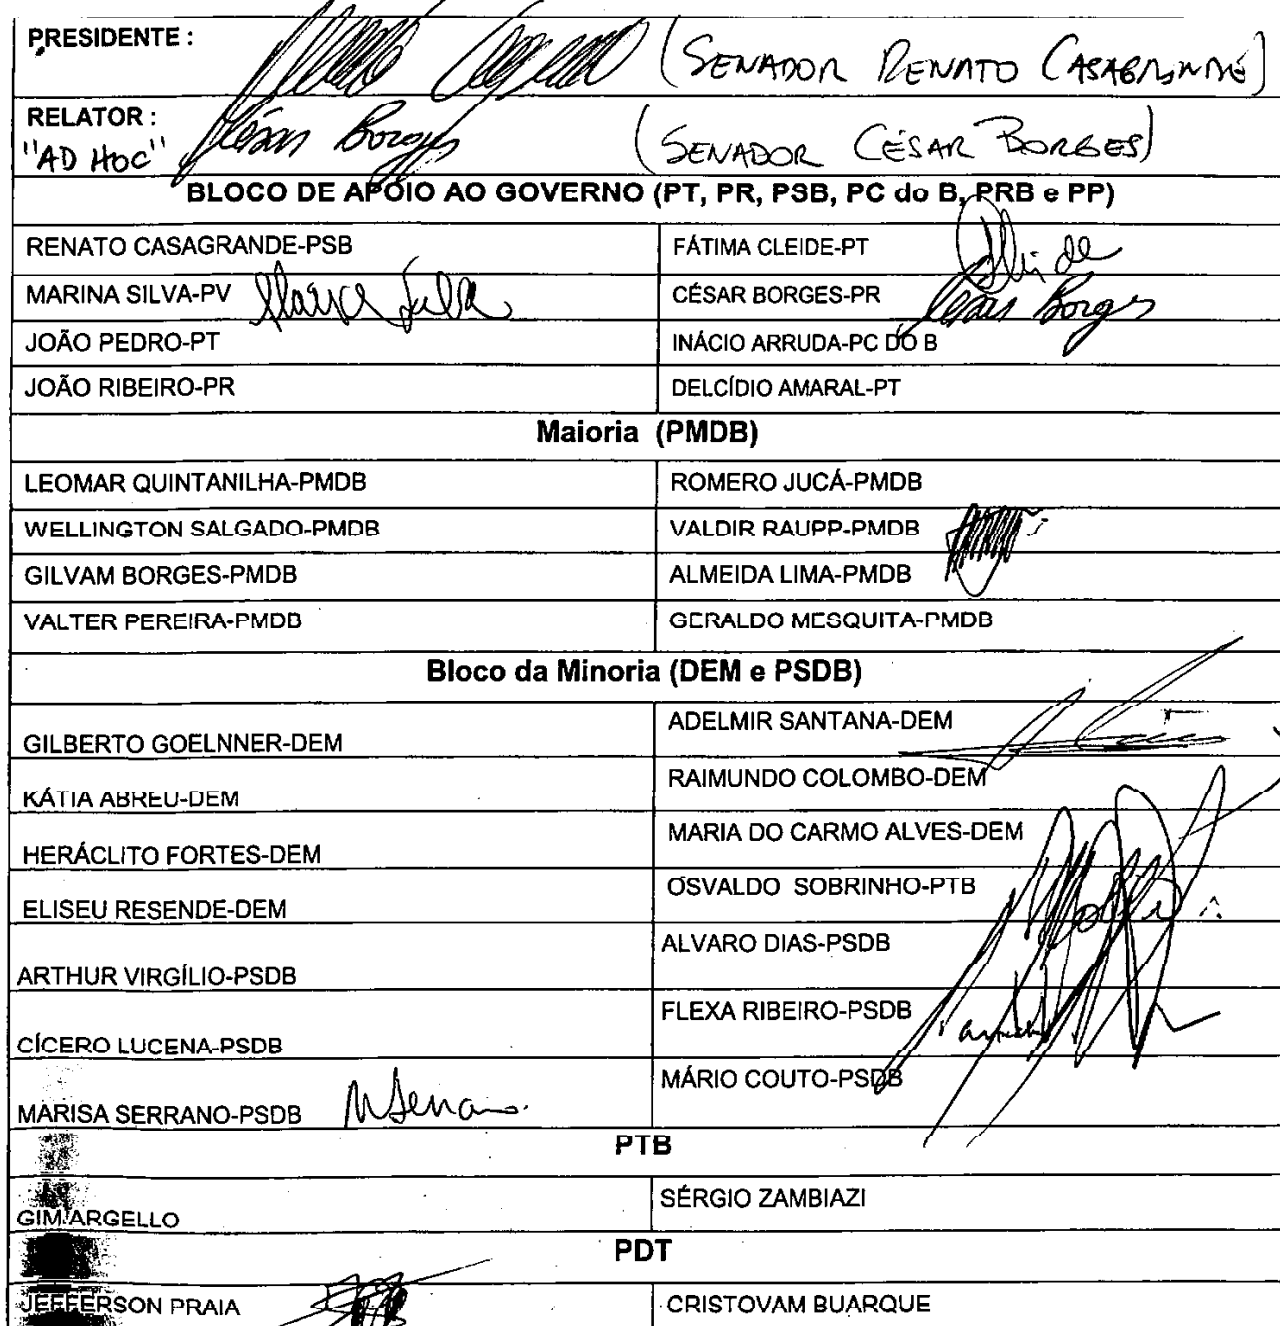 PRESIDENTE : (SENADOR RENATO CASAGRANDE)
RELATOR :
"AD HOC" César Borges (SENADOR CÉSAR BORGES)
BLOCO DE APOIO AO GOVERNO (PT, PR, PSB, PC do B, PRB e PP)
RENATO CASAGRANDE-PSB FÁTIMA CLEIDE-PT
MARINA SILVA-PV Marina Silva CÉSAR BORGES-PR César Borges
JOÃO PEDRO-PT INÁCIO ARRUDA-PC DO B
JOÃO RIBEIRO-PR DELCÍDIO AMARAL-PT
Maioria (PMDB)
LEOMAR QUINTANILHA-PMDB ROMERO JUCÁ-PMDB
WELLINGTON SALGADO-PMDB VALDIR RAUPP-PMDB
GILVAM BORGES-PMDB ALMEIDA LIMA-PMDB
VALTER PEREIRA-PMDB GERALDO MESQUITA-PMDB
Bloco da Minoria (DEM e PSDB)
GILBERTO GOELNNER-DEM ADELMIR SANTANA-DEM
KÁTIA ABREU-DEM RAIMUNDO COLOMBO-DEM
HERÁCLITO FORTES-DEM MARIA DO CARMO ALVES-DEM
ELISEU RESENDE-DEM OSVALDO SOBRINHO-PTB
ARTHUR VIRGÍLIO-PSDB ALVARO DIAS-PSDB
CÍCERO LUCENA-PSDB FLEXA RIBEIRO-PSDB
MARISA SERRANO-PSDB MSerrano. MÁRIO COUTO-PSDB
PTB
GIM ARGELLO SÉRGIO ZAMBIAZI
PDT
JEFFERSON PRAIA CRISTOVAM BUARQUE